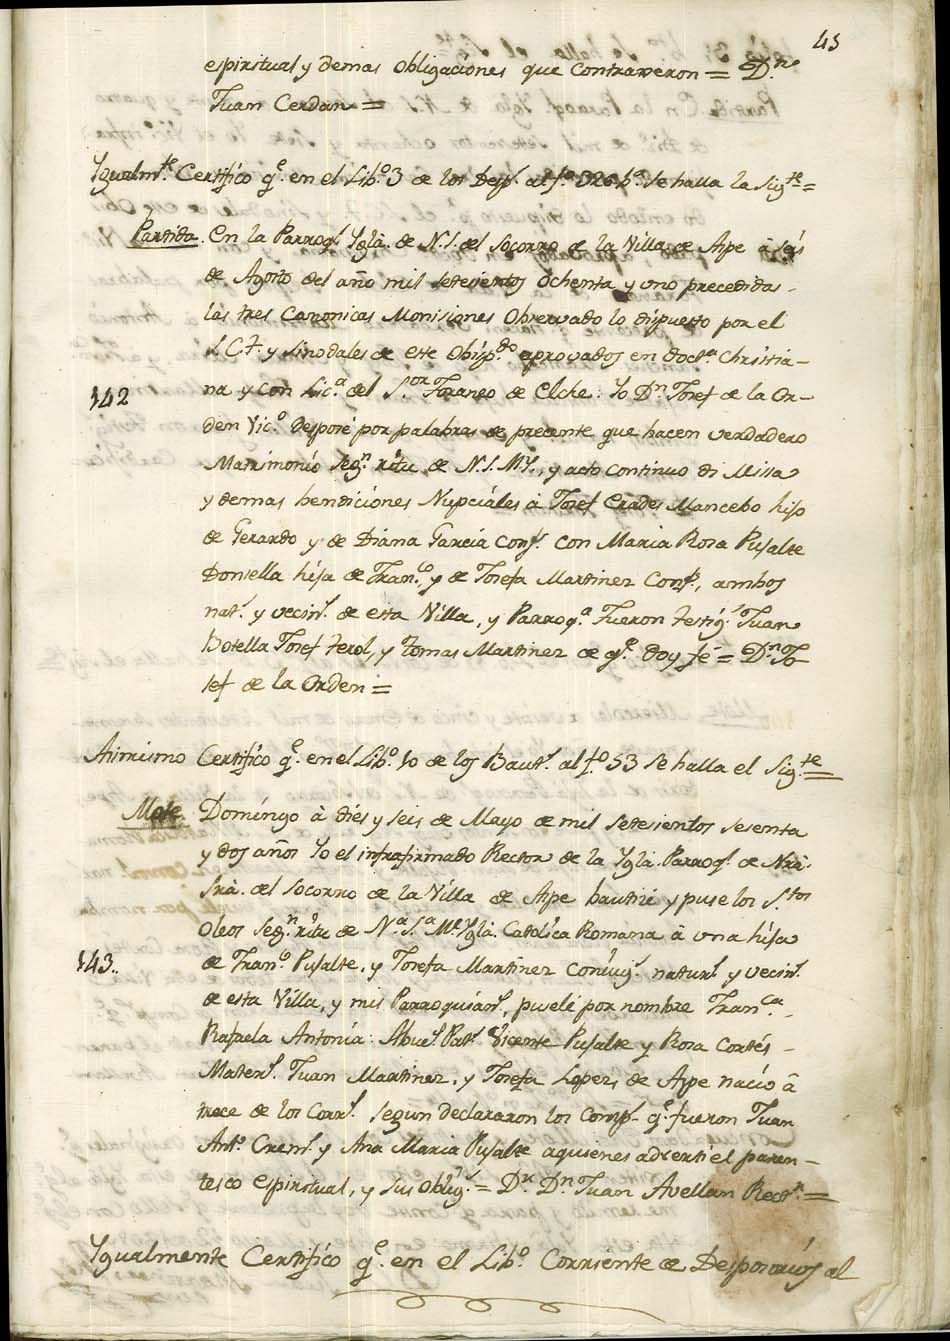 43
espiritual y demas obligaciones que contraxeron = D.n
Juan Cerdan =
Ygualm.te Certifico q.e en el Lib.o 3 de los Desp.s al f.o 326 b.ta se halla la Sig.te =
Partida. En la Parroq.l Ygl.a de N.S. del Socorro de la Villa de Aspe â seis
de Agosto del año mil setesientos ochenta y uno precedidas
las tres Canonicas Monisiones observado lo dispuesto por el
S.C.T. y Sinodales de este Obisp.do aprovados en doct.a Christia-
142
na y con Lic.a del S.or Foraneo de Elche: Yo D.n Josef de la Or-
den Vic.o Desposé por palabras de precente que hacen verdadero
Matrimonio seg.n ritu de N.S. M.Y., y acto continuo di Missa
y demas bendiciones Nupciáles â Josef Erades Mancebo hijo
de Gerardo y de Diána García Cons.s con Maria Rosa Pujalte
Donsella hija de Fran.co, y de Josefa Martinez Cons.s, ambos
nat.s y vecin.s de esta Villa, y Parroq.a Fueron testig.s Juan
Botella Josef Ferol, y Tomas Martinez de q.e doy fé = D.n Jo-
sef de la Orden =
Asimismo Certifico q.e en el Lib.o 10 de los Baut.s al f.o 53 se halla el Sig.te =
Mote. Domíngo â diés y seis de Mayo de mil setesientos sesenta
y dos años Yo el infrafirmado Rector de la Ygl.a Parroq.l de Nrâ.
Srâ. del Socorro de la Villa de Aspe bautisé y puse los S.tos
Oleos Seg.n ritu de N.a S.a M.e Ygl.a Catolica Romana â una hija
143..
de Fran.co Pujalte, y Josefa Martinez Coniug.s natur.s y vecin.s
de esta Villa, y mis Parroquián.s, pusele por nombre Fran.ca
Rafaela Antonia: Abue.s Pat.s Vicente Pujalte y Rosa Cortés
Matern.s Juan Martinez, y Josefa Lopez de Aspe nacío â
trece de los Corr.s segun declararon los Comp.s q.e fueron Juan
Ant.o Crem.s y Ana Maria Pujalte aquienes advertí el paren-
tesco espiritual, y sus oblig.s = D.r D.n Juan Avellan Rect.r =
Ygualmente Certifico q.e en el Lib.o Corriente de Desposorios al